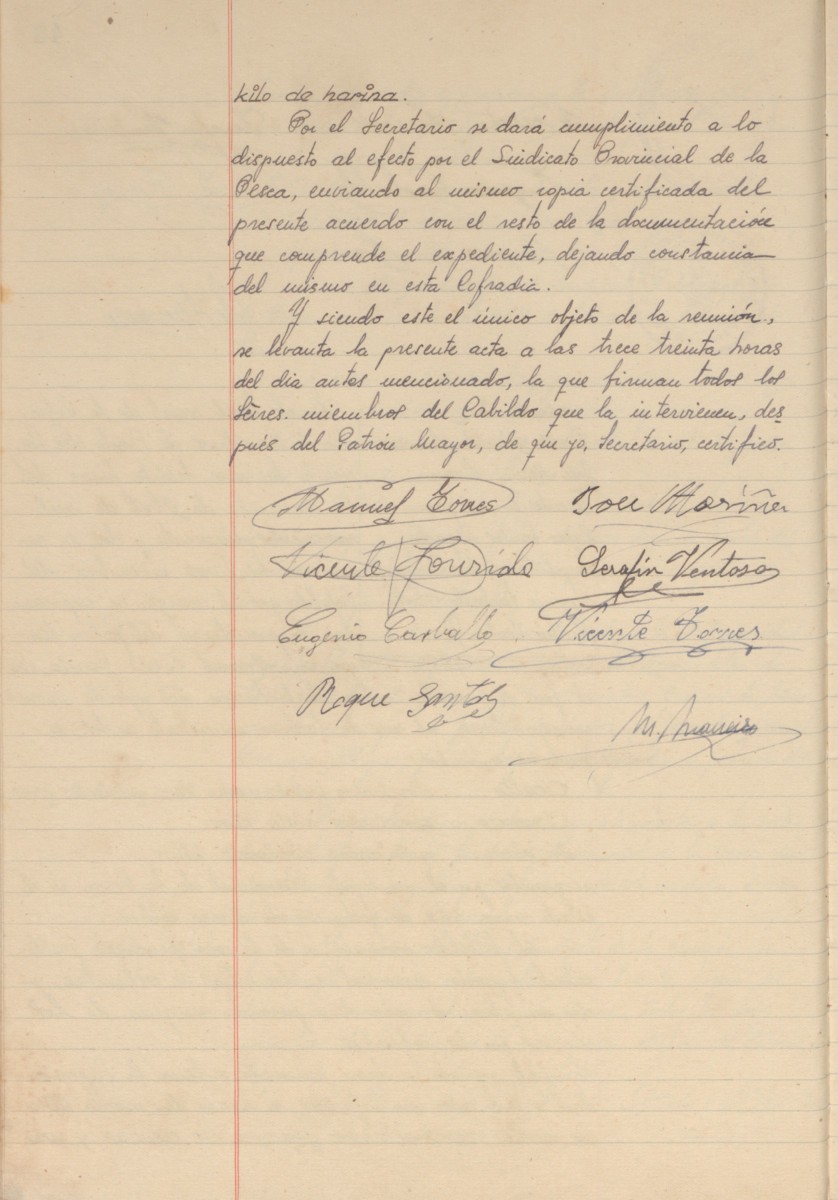 kilo de harina.
Por el Secretario se dará cumplimiento a lo
dispuesto al efecto por el Sindicato Provincial de la
Pesca, enviando al mismo copia certificada del
presente acuerdo con el resto de la documentación
que comprende el expediente, dejando constancia
del mismo en esta Cofradia.
Y siendo este el único objeto de la reunión,
se levanta la presente acta a las trece treinta horas
del dia antes mencionado, la que firman todos los
Sres. miembros del Cabildo que la intervienen, des-
pués del Patrón Mayor, de que yo, Secretario, certifico.
Manuel Torres
Vicente Lourido Serafín Ventoso
Eugenio Carballo Vicente Torres
Roque Santos
M.